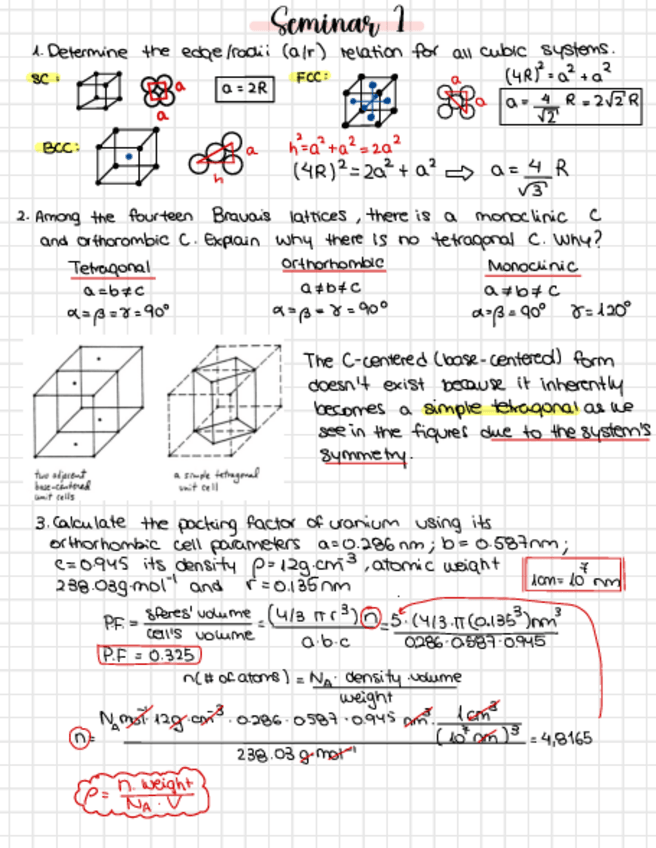 Seminar 1
1. Determine the edge/radii (a/r) relation for all cubic systems.
SC: a a a = 2R FCC: a a (4R)² = a² + a²
a = 4/√2 R = 2√2 R
BCC: a h h² = a² + a² = 2a²
(4R)² = 2a² + a² ⇒ a = 4/√3 R
2. Among the fourteen Bravais lattices, there is a monoclinic C
and orthorombic C. Explain why there is no tetragonal C. Why?
Tetragonal Orthorhombic Monoclinic
a=b≠c a≠b≠c a≠b≠c
α=β=γ=90° α=β=γ=90° α=β=90° γ=120°
The C-centered (base-centered) form
doesn't exist because it inherently
becomes a simple tetragonal as we
see in the figures due to the system's
symmetry.
two adjacent
base-centered
unit cells
a simple tetragonal
unit cell
3. Calculate the packing factor of uranium using its
orthorhombic cell parameters a=0.286nm; b=0.587nm;
c=0.945 its density ρ=12g·cm⁻³, atomic weight
238.03g·mol⁻¹ and r=0.135nm
1cm=10⁷ nm
P.F = speres' volume / cell's volume = (4/3 π r³) n / a·b·c = 5·(4/3·π(0.135³)nm³ / 0.286·0.587·0.945
P.F = 0.325
n(# of atoms) = NA · density · volume / weight
n = NA mol⁻¹ · 12g·cm⁻³ · 0.286·0.587·0.945 nm³ · 1cm³/(10⁷ nm)³ / 238.03 g·mol⁻¹ = 4,8165
ρ = n·weight / NA·V